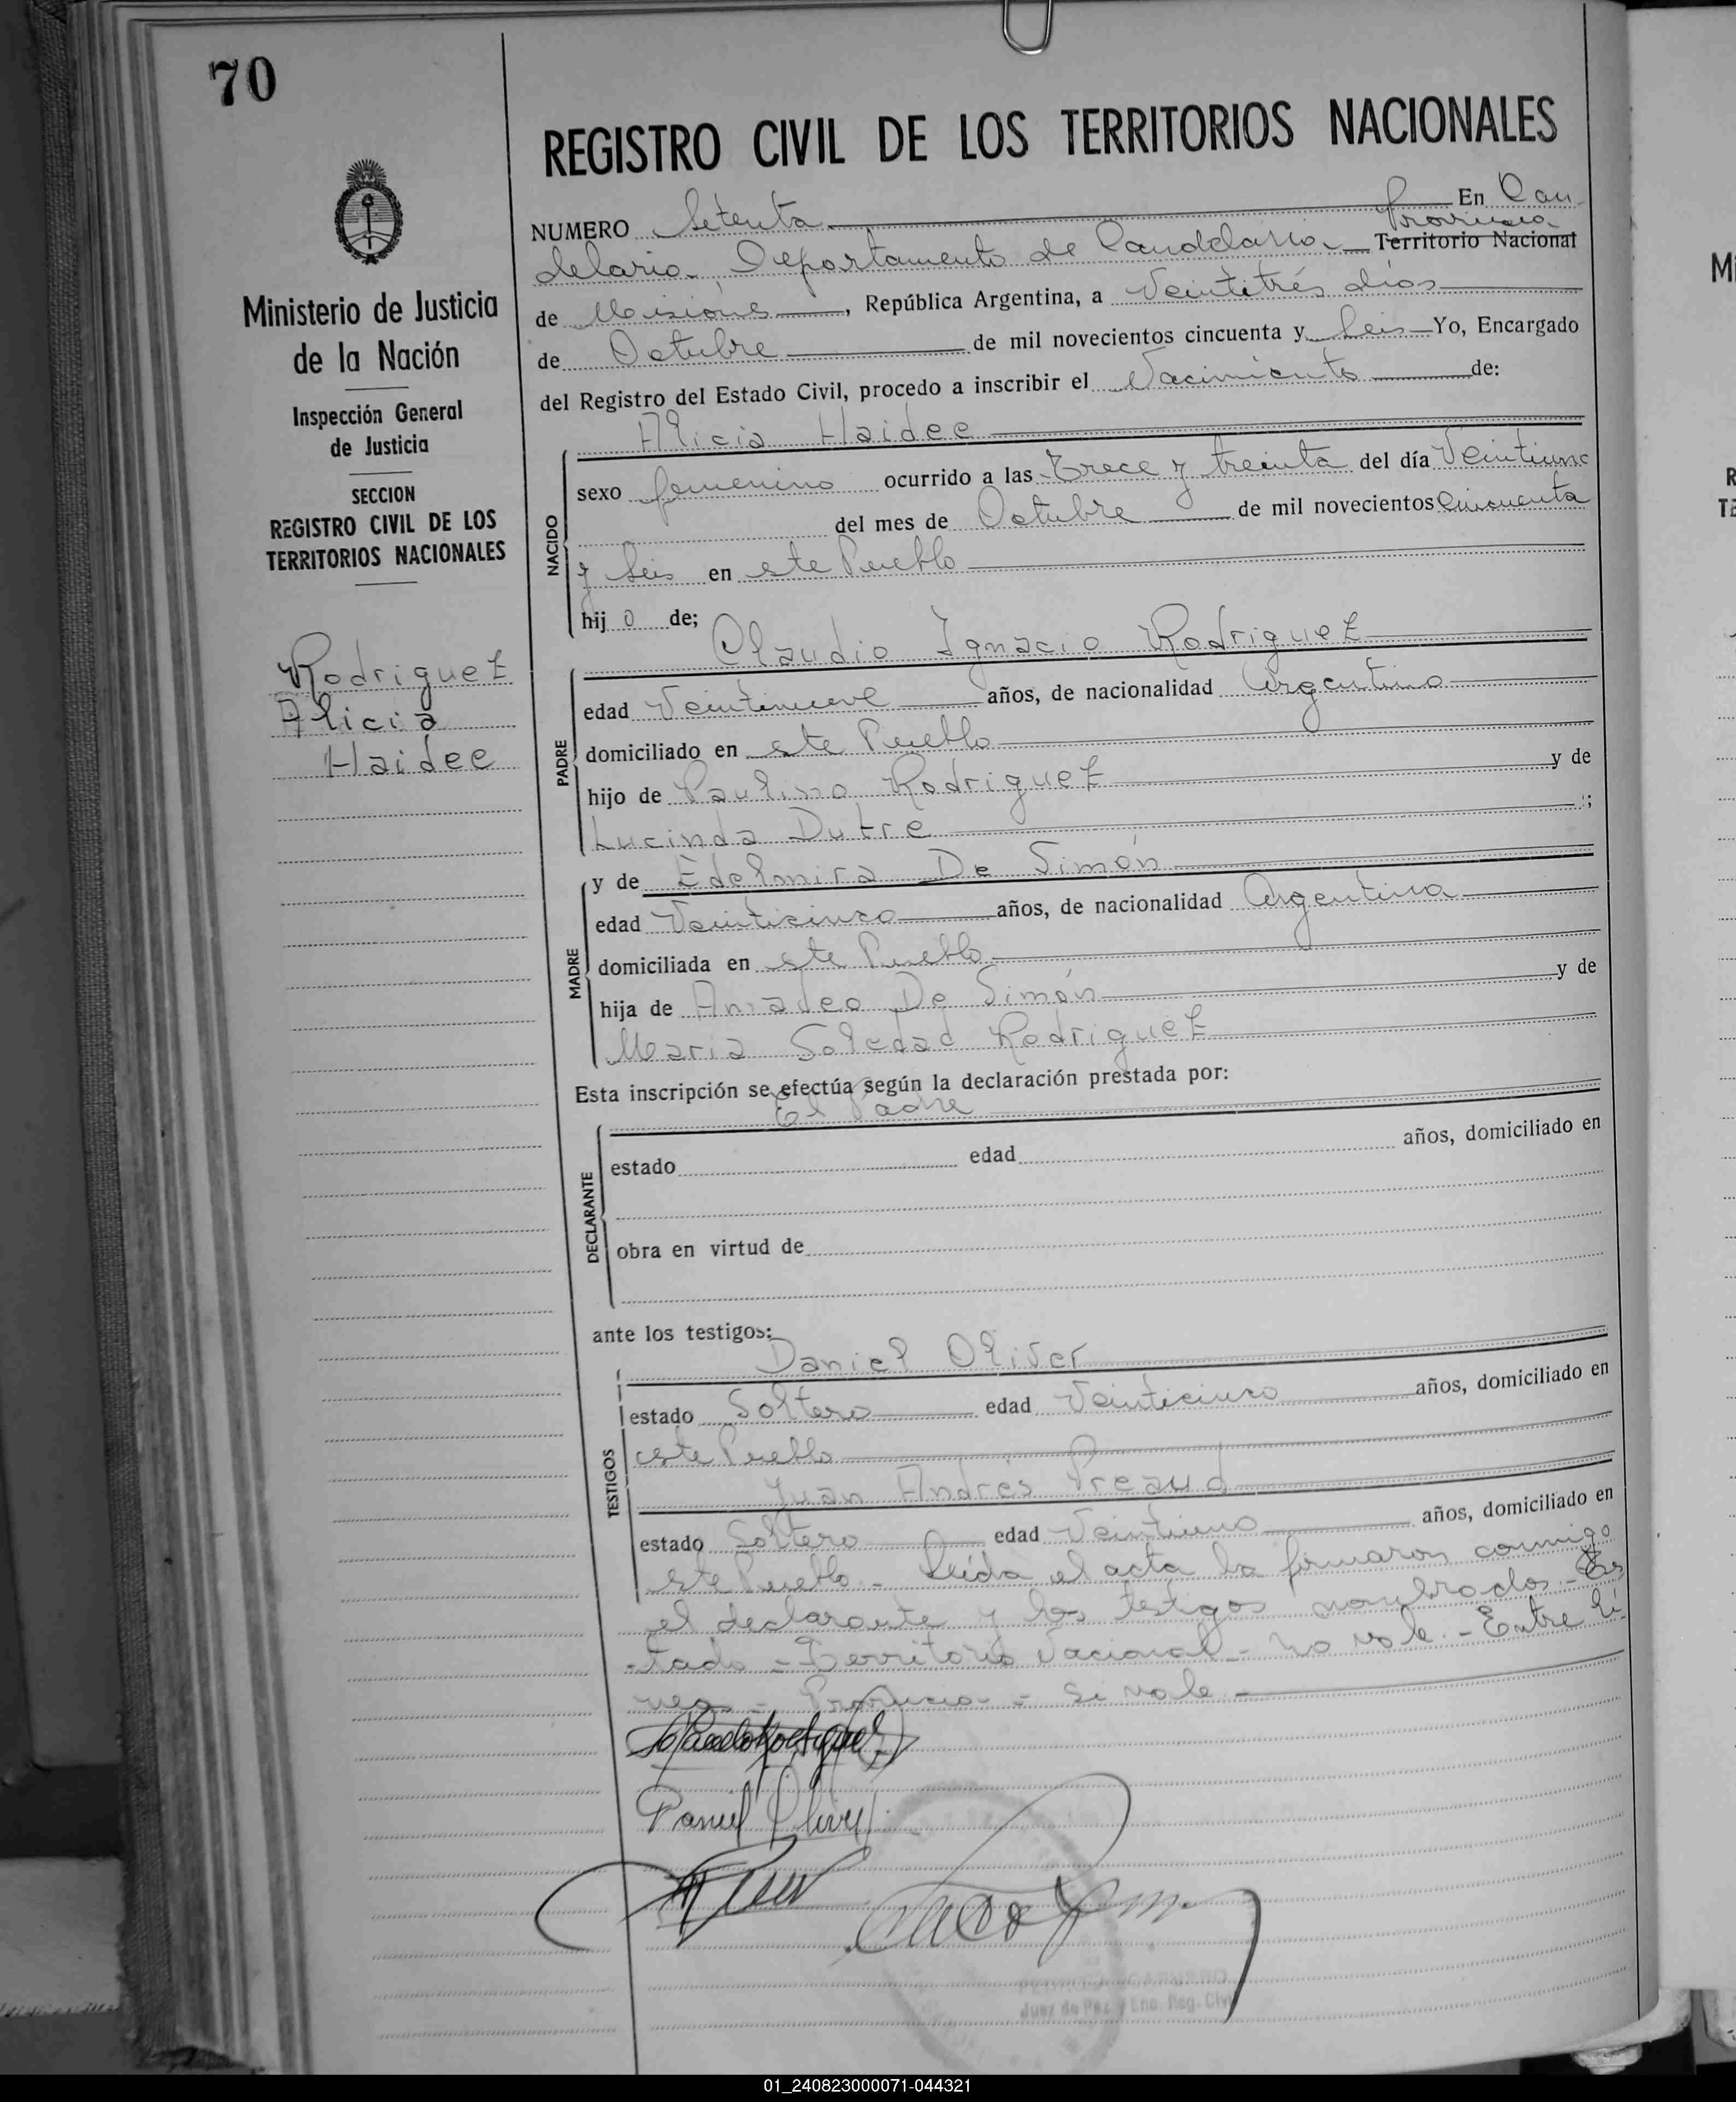 70
REGISTRO CIVIL DE LOS TERRITORIOS NACIONALES
Ministerio de Justicia
de la Nación
Inspección General
de Justicia
SECCION
REGISTRO CIVIL DE LOS
TERRITORIOS NACIONALES
Rodriguez
Alicia
Haidee
NUMERO Setenta En Can-
Provincia
delaria Departamento de Candelaria Territorio Nacional
de Misiones, República Argentina, a Veintitrés días
de Octubre de mil novecientos cincuenta y Seis Yo, Encargado
del Registro del Estado Civil, procedo a inscribir el Nacimiento de:
Alicia Haidee
NACIDO
sexo femenino ocurrido a las Trece y treinta del día Veintiuno
del mes de Octubre de mil novecientos cincuenta
y Seis en este Pueblo
hij a de;
Claudio Ignacio Rodriguez
PADRE
edad Veintinueve años, de nacionalidad Argentino
domiciliado en este Pueblo
hijo de Paulino Rodriguez y de
Lucinda Dutre ;
MADRE
y de Edelmira De Simón
edad Veinticinco años, de nacionalidad Argentina
domiciliada en este Pueblo
hija de Amadeo De Simón y de
Maria Soledad Rodriguez
Esta inscripción se efectúa según la declaración prestada por:
El Padre
DECLARANTE
estado edad años, domiciliado en
obra en virtud de
ante los testigos:
Daniel Oliver
TESTIGOS
estado Soltero edad Veinticinco años, domiciliado en
este Pueblo
Juan Andrés Preaud
estado Soltero edad Veintiuno años, domiciliado en
este Pueblo - Leída el acta la firmaron conmigo
el declarante y los testigos nombrados - Tes
tado - Territorio Nacional - no vale - Entre lí-
neas - Provincia - Si vale -
Daniel Oliver
Juez de Paz y Enc. Reg. Civil
01_240823000071-044321